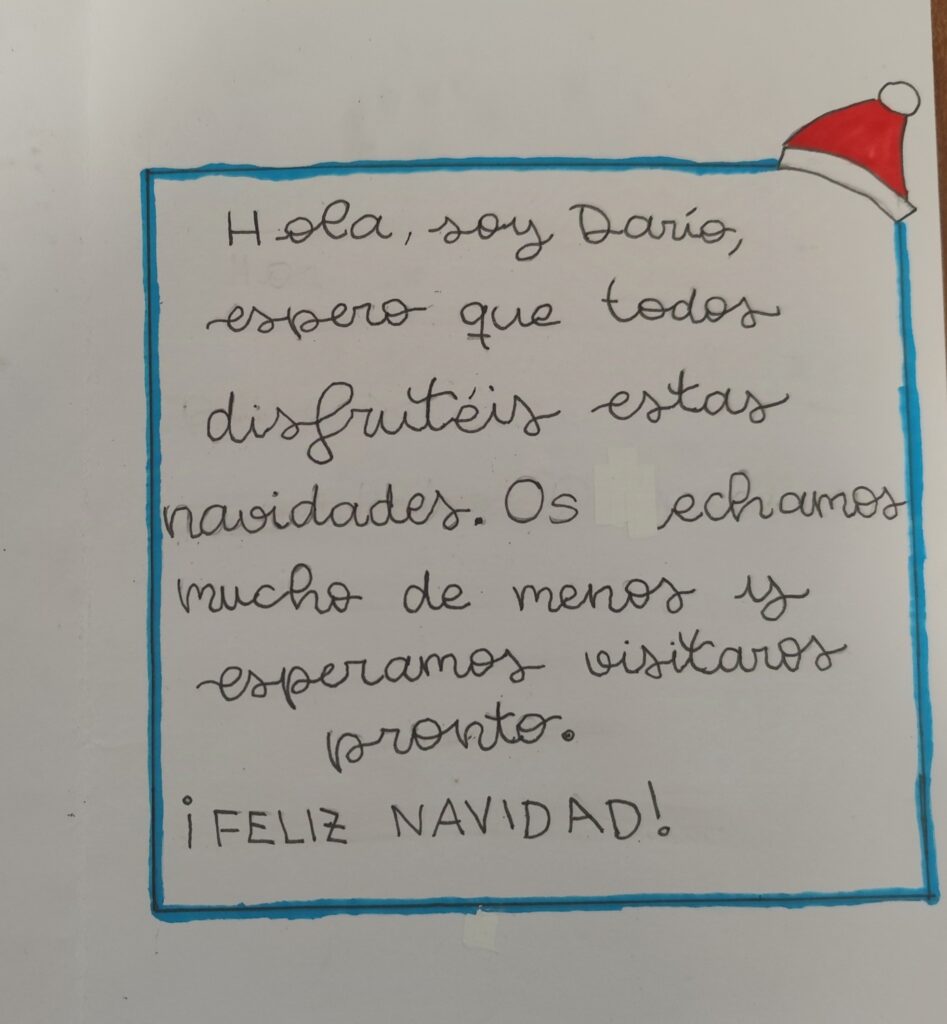 Hola, soy Darío,
espero que todos
disfrutéis estas
navidades. Os echamos
mucho de menos y
esperamos visitaros
pronto.
¡FELIZ NAVIDAD!